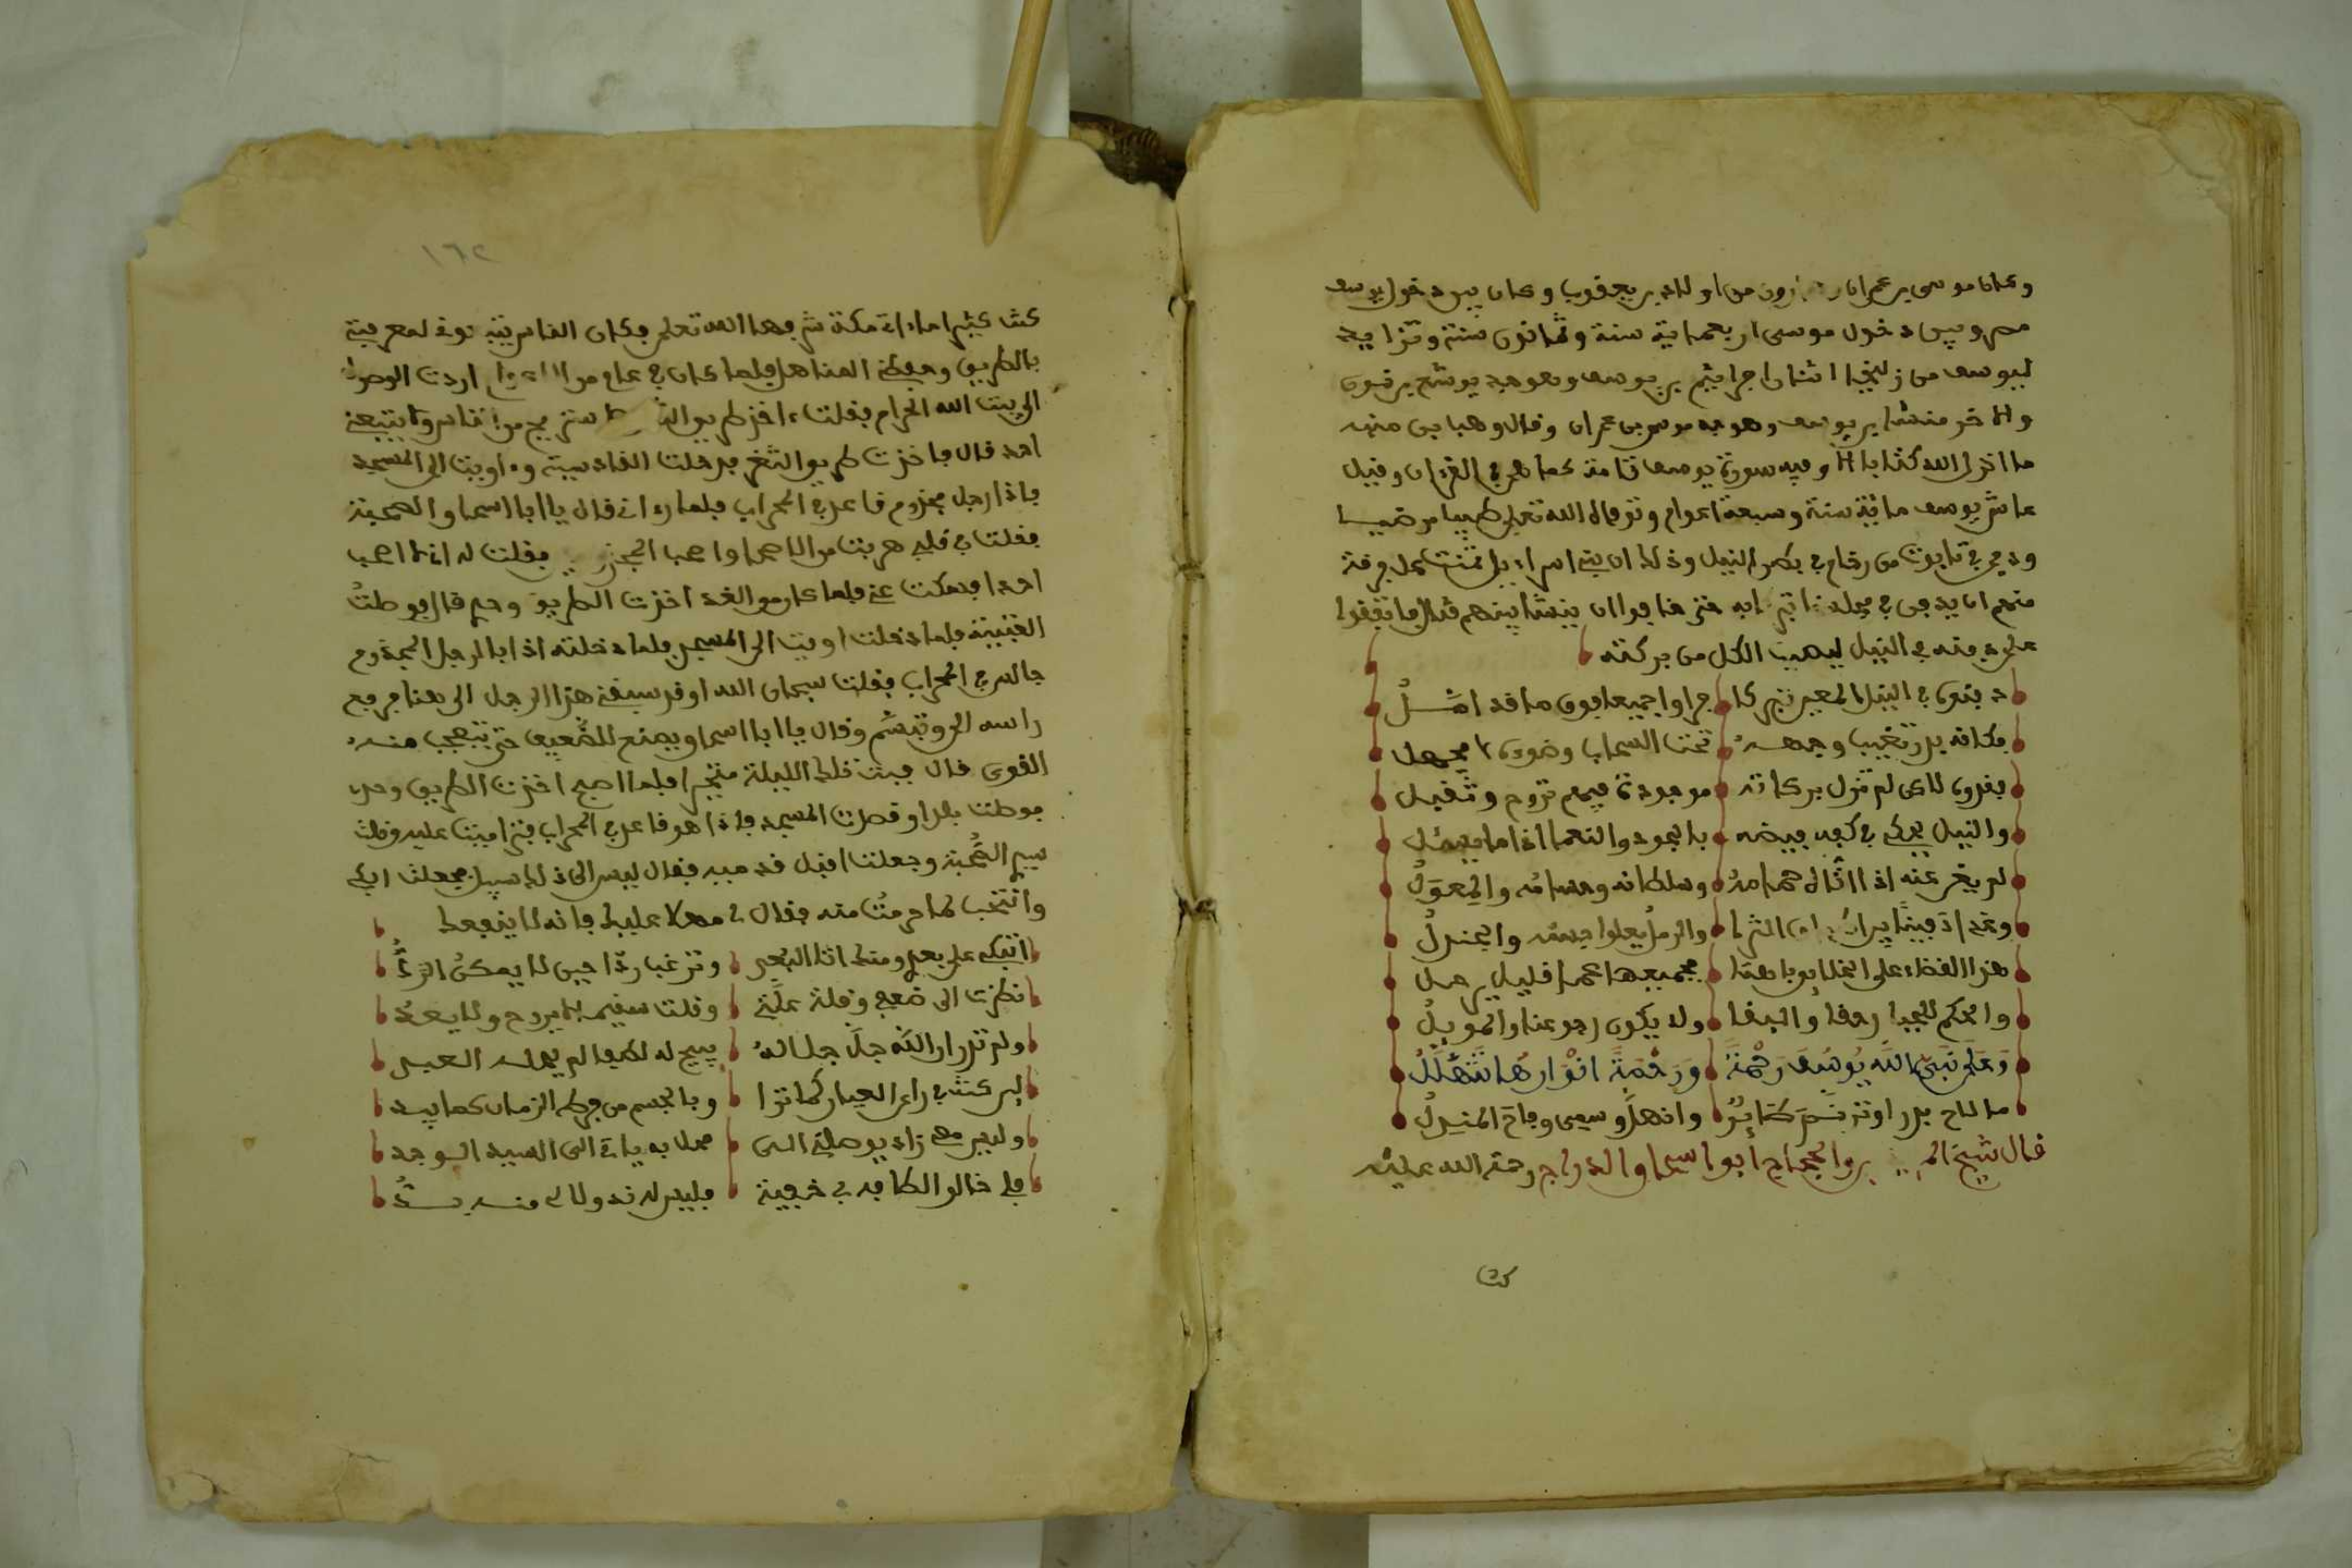 وكان موسى بن عمران من اولاد بن يعقوب وكان بين دخول يوسف
مصر وبين دخول موسى اربعماية سنة وثمانون سنة وتزايد
ليوسف من زليخا اثنان افراييم بن يوسف وهو جد يوشع بن نون
والاخر منشا بن يوسف وهو جد موسى بن عمران وقال وهب بن منبه
ما انزل الله كتابا الا وفيه سورة يوسف تامة كما هي في القرءان وقيل
عاش يوسف ماية سنة وسبعة اعوام وتوفاه الله تعلى طيبا مرضيا
ودفن في تابوت من رخام في بطن النيل وذلك ان بني اسراءيل تمنت كل فرقة
منهم ان يدفن في محلة حتى خافوا ان ينشا بينهم قتال فاتفقوا
على دفنه في النيل ليصيب الكل من بركته
دفنوه في النيل المعين تبركا جراوا جميعا فوق ما قد املوا
فكانه بدر تغيب وجهه تحت السحاب وضوءه لا يجهل
فغدون لاكن لم تزل بركاته موجودة فيهم تروح وتقبل
والنيل يحكي في كفه فيضه بالجود والنعما اذا ما يسئل
لم يغن عنه اذا اتاه حمامه وسلطانه وحسامه والمعول
وغدا دفينا الثرى والرمل يعلوا جسمه والجندل
هذا القضاء على الخلايق باهتا فجميعها عما قليل يرحل
والحكم للجبار حقا والبقا ولا يكون رجوعنا والمويل
وعلى نبي الله يوسف رحمة ورحمة انوارها تتهلل
ما لاح بدر او ترنم طائر وانهل وسمي وفاح المندل
قال شيخ بن الحجاج ابو اسحاق الدراج رحمة الله عليه
كنت
١٦٢
كنت كثيرا ما اءتي مكة شرفها الله تعلى وكان الناس يتبعوني لمعرفتي
بالطريق وحفظي المناهل فلما كان في عام من الاعوام اردت الوصول
الى بيت الله الحرام فقلت ءاخذ طريق حتى نستريح من الناس ولا يتبعني
احد قال فاخذت طريق الثغر فدخلت القادسية وءاويت الى المسجد
فاذا رجل مجذوم قاعد في المحراب فلما رءاني قال يا ابا اسحاق الصحبة
فقلت في قلبي هربت من الاصحاب واصحب المجذوم فقلت له انا لا اصحب
احدا فسكت عني فلما كان من الغد اخذت الطريق وحدي قال فوصلت
العتيبة فلما دخلت اويت الى المسجد فلما دخلته اذا بالرجل المجذوم
جالس في المحراب فقلت سبحان الله او قد سبقني هذا الرجل الى هنا فرفع
راسه الي وتبسم وقال يا ابا اسحاق يصنع للضعيف حتى يتعجب منه
القوي قال فبت تلك الليلة متحيرا فلما اصبح اخذت الطريق وحدي
فوصلت بلدا وقصدت المسجد فاذا هو قاعد في المحراب فتراميت عليه وقلت
سيدي الصحبة وجعلت اقبل قدميه فقال ليس الى ذلك سبيل فجعلت ابكي
وانتحب لما حرمت منه فقال لي مهلا عليك فانه لا ينفعك
اتبكي على بعدي ومنك اتى البعد وترغب ردا حين لا يمكن الرد
نظرت الى ضعفي وقلة علتي وقلت سقيم لا يروح ولا يغد
ولم تدر ان الله جل جلاله يبيح له لطفا لم يصله العبد
لين كنت في راى العيان كما ترا وبالجسم من فرط الزمان كما يبد
وليس معي زاد يوصلني الى محل به ياتي الى السيد الوجد
فلي خالق الطافه بي خفية فليس له ند ولا لي منه بد